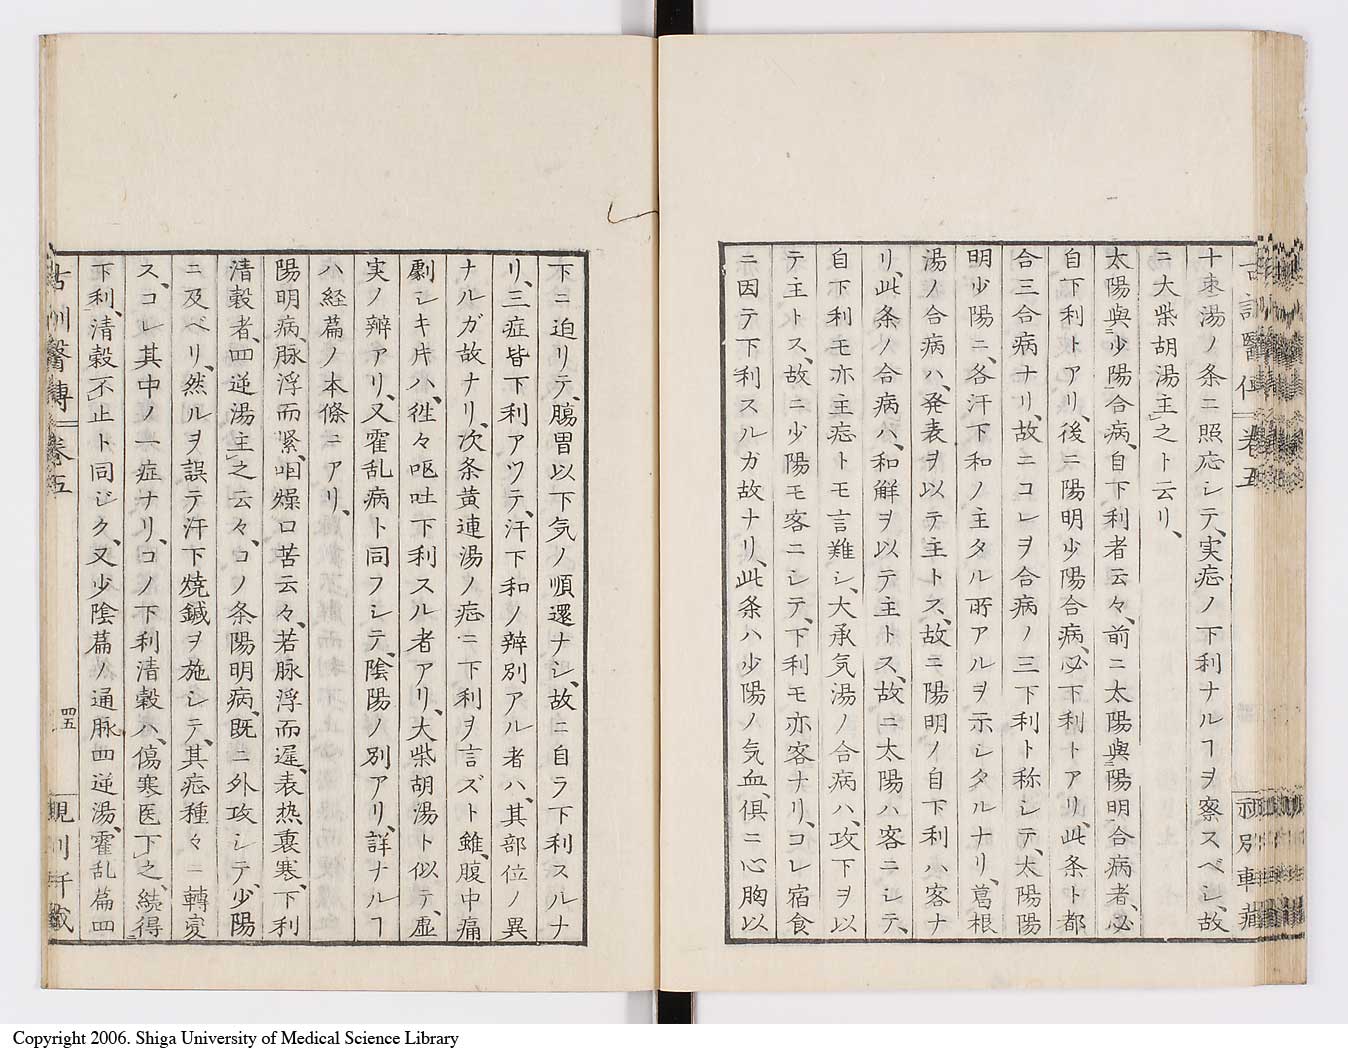 十枣湯ノ条ニ照応シテ、実症ノ下利ナルヿヲ察スベシ、故
ニ大柴胡湯主之ト云リ、
太陽與少陽合病、自下利者云々、前ニ太陽與陽明合病者、必
自下利トアリ、後ニ陽明少陽合病、必下利トアリ、此条ト都
合三合病ナリ、故ニコレヲ合病ノ三下利ト称シテ、太陽陽
明少陽ニ、各汗下和ノ主タル所アルヲ示シタルナリ、葛根
湯ノ合病ハ、発表ヲ以テ主トス、故ニ陽明ノ自下利ハ客ナ
リ、此条ノ合病ハ、和解ヲ以テ主トス、故ニ太陽ハ客ニシテ、
自下利モ亦主症トモ言難シ、大承気湯ノ合病ハ、攻下ヲ以
テ主トス、故ニ少陽モ客ニシテ、下利モ亦客ナリ、コレ宿食
ニ因テ下利スルガ故ナリ、此条ハ少陽ノ気血、倶ニ心胸以
下ニ迫リテ、腸胃以下気ノ順還ナシ、故ニ自ラ下利スルナ
リ、三症皆下利アツテ、汗下和ノ辨別アル者ハ、其部位ノ異
ナルガ故ナリ、次条黄連湯ノ症ニ下利ヲ言ズト雖、腹中痛
劇シキ片ハ、徃々呕吐下利スル者アリ、大柴胡湯ト似テ、虚
実ノ辨アリ、又霍乱病ト同フシテ、陰陽ノ別アリ、詳ナルヿ
ハ経篇ノ本條ニアリ、
陽明病、脉浮而緊、咽燥口苦云々、若脉浮而遅、表热裏寒、下利
清穀者、四逆湯主之云々、コノ条陽明病、既ニ外攻シテ、少陽
ニ及ベリ、然ルヲ誤テ汗下焼鍼ヲ施シテ、其症種々ニ轉変
ス、コレ其中ノ一症ナリ、コノ下利清穀ハ、傷寒医下之、続得
下利、清穀不止ト同ジク、又少陰篇ノ通脉四逆湯、霍乱篇四
古訓醫傳 卷五
四五